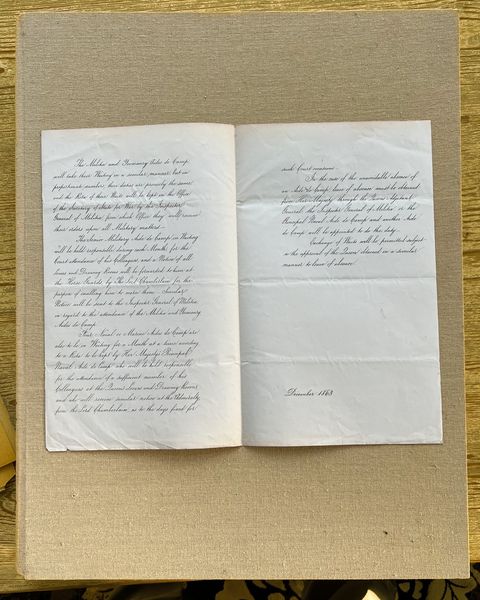 The Militia and Yeomanry Aides de Camp
will take their Waiting in a similar manner, but in
proportionate numbers their duties are precisely the same
and the Rota of their Waits will be kept in the Office
of the Secretary of State for War by the Inspector
General of Militia from which Office they will receive
their orders upon all Military matters.
The Senior Military Aide de Camp in Waiting
will be held responsible during each Month for the
Court attendance of his Colleagues and a Notice of all
Levees and Drawing Rooms will be forwarded to him at
the Horse Guards by The Lord Chamberlain for the
purpose of enabling him to warn them. Similar
Notices will be sent to the Inspector General of Militia
in regard to the attendance of the Militia and Yeomanry
Aides de Camp.
Four Naval or Marine Aides de Camp are
also to be in Waiting for a Month at a time according
to a Rota to be kept by Her Majesty's Principal
Naval Aide de Camp who will be held responsible
for the attendance of a sufficient number of his
Colleagues at the Queen's Levees and Drawing Rooms
and who will receive similar notice at the Admiralty
from the Lord Chamberlain as to the days fixed for
such Court occasions.
In the case of the unavoidable absence of
an Aide de Camp leave of absence must be obtained
from Her Majesty through the Queen's Adjutant
General, the Inspector General of Militia or the
Principal Naval Aide de Camp and another Aide
de Camp will be appointed to do the duty.
Exchange of Waits will be permitted subject
to the approval of the Queen obtained in a similar
manner to leave of absence.
December 1868